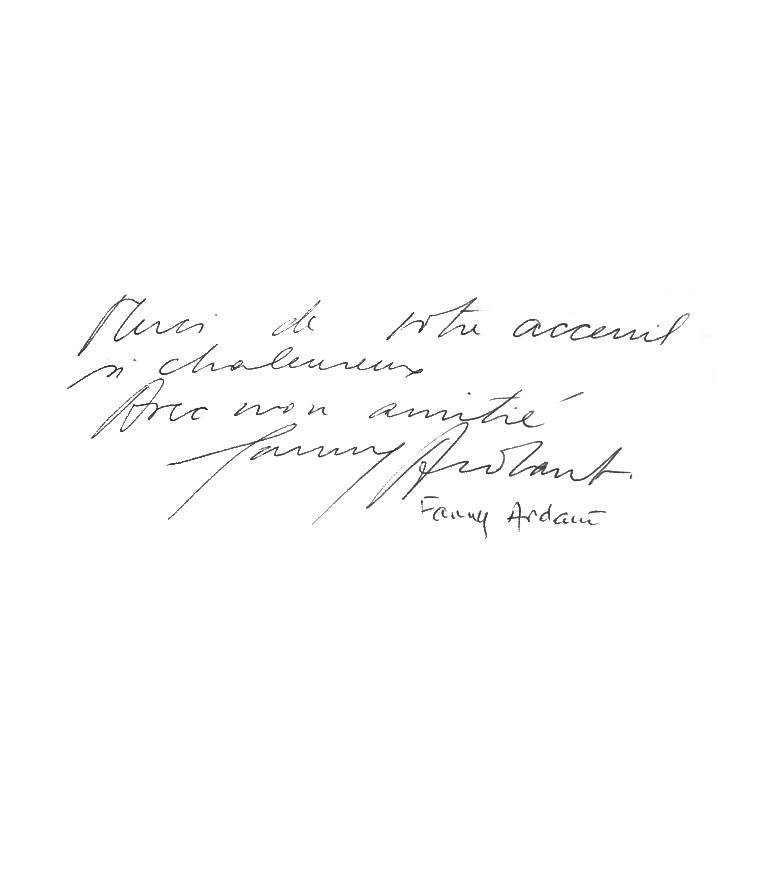 Merci de votre acceuil
si chaleureux
Avec mon amitié
Fanny Ardant.
Fanny Ardant